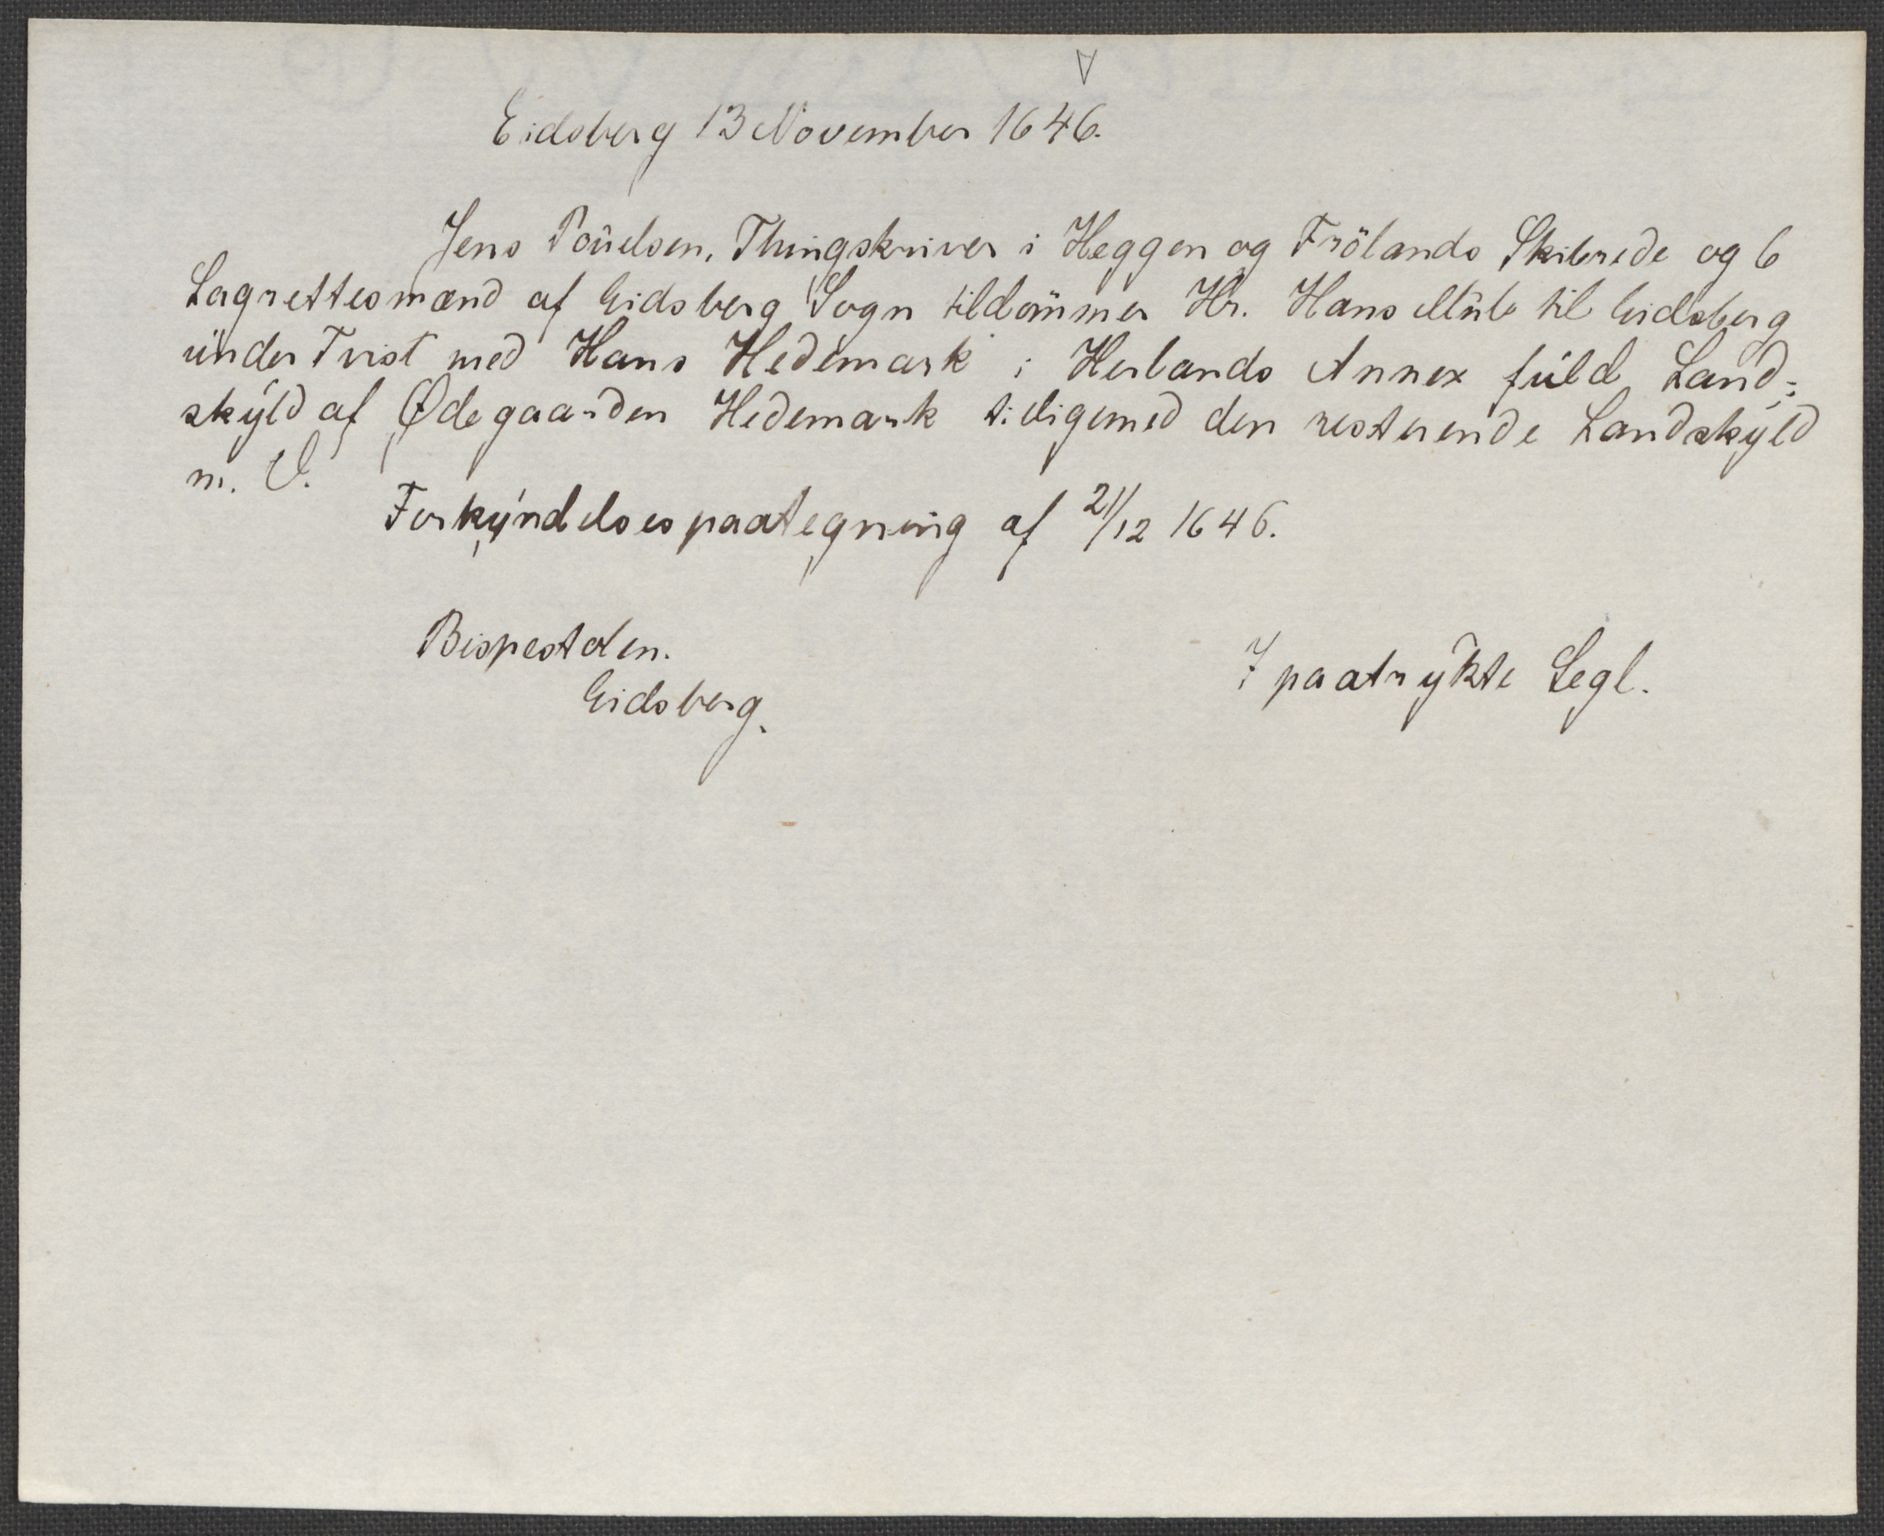 Eidsberg 13 November 1646.
Jens Poŭelsen, Thingskriver i Heggen og Frölands Skibrede og 6
Lagrettesmænd af Eidsberg Sogn tildömmer Hr. Hans til Eidsberg
ŭnder Tvist med Hans Hedemark i Herlands Annex fŭld Land-
skyld af Ødegaarden Hedemark tilligemed den resterende Landskyld
m. V.
Forkyndelsespaategning af 21/12 1646.
Bispestolen.
Eidsberg.
7 paatrykte Segl.